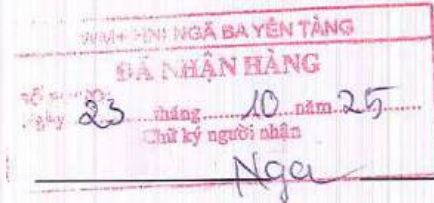 WM+ HNI NGÃ BA YÊN TÀNG
ĐÃ NHẬN HÀNG
Ngày 23 tháng 10 năm 25
Chữ ký người nhận
Nga